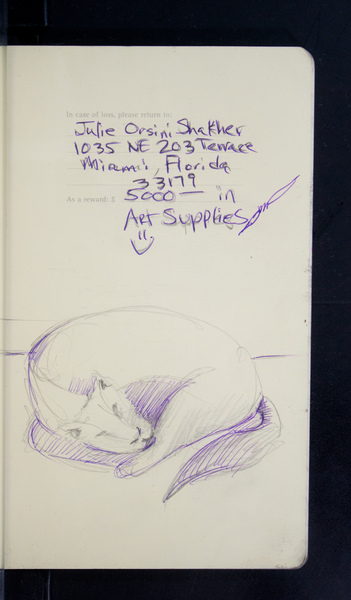 In case of loss, please return to:
Julie Orsini Shakher
1035 NE 203 Terrace
Miami, Florida
33179
As a reward: $ 5000 — in
Art Supplies